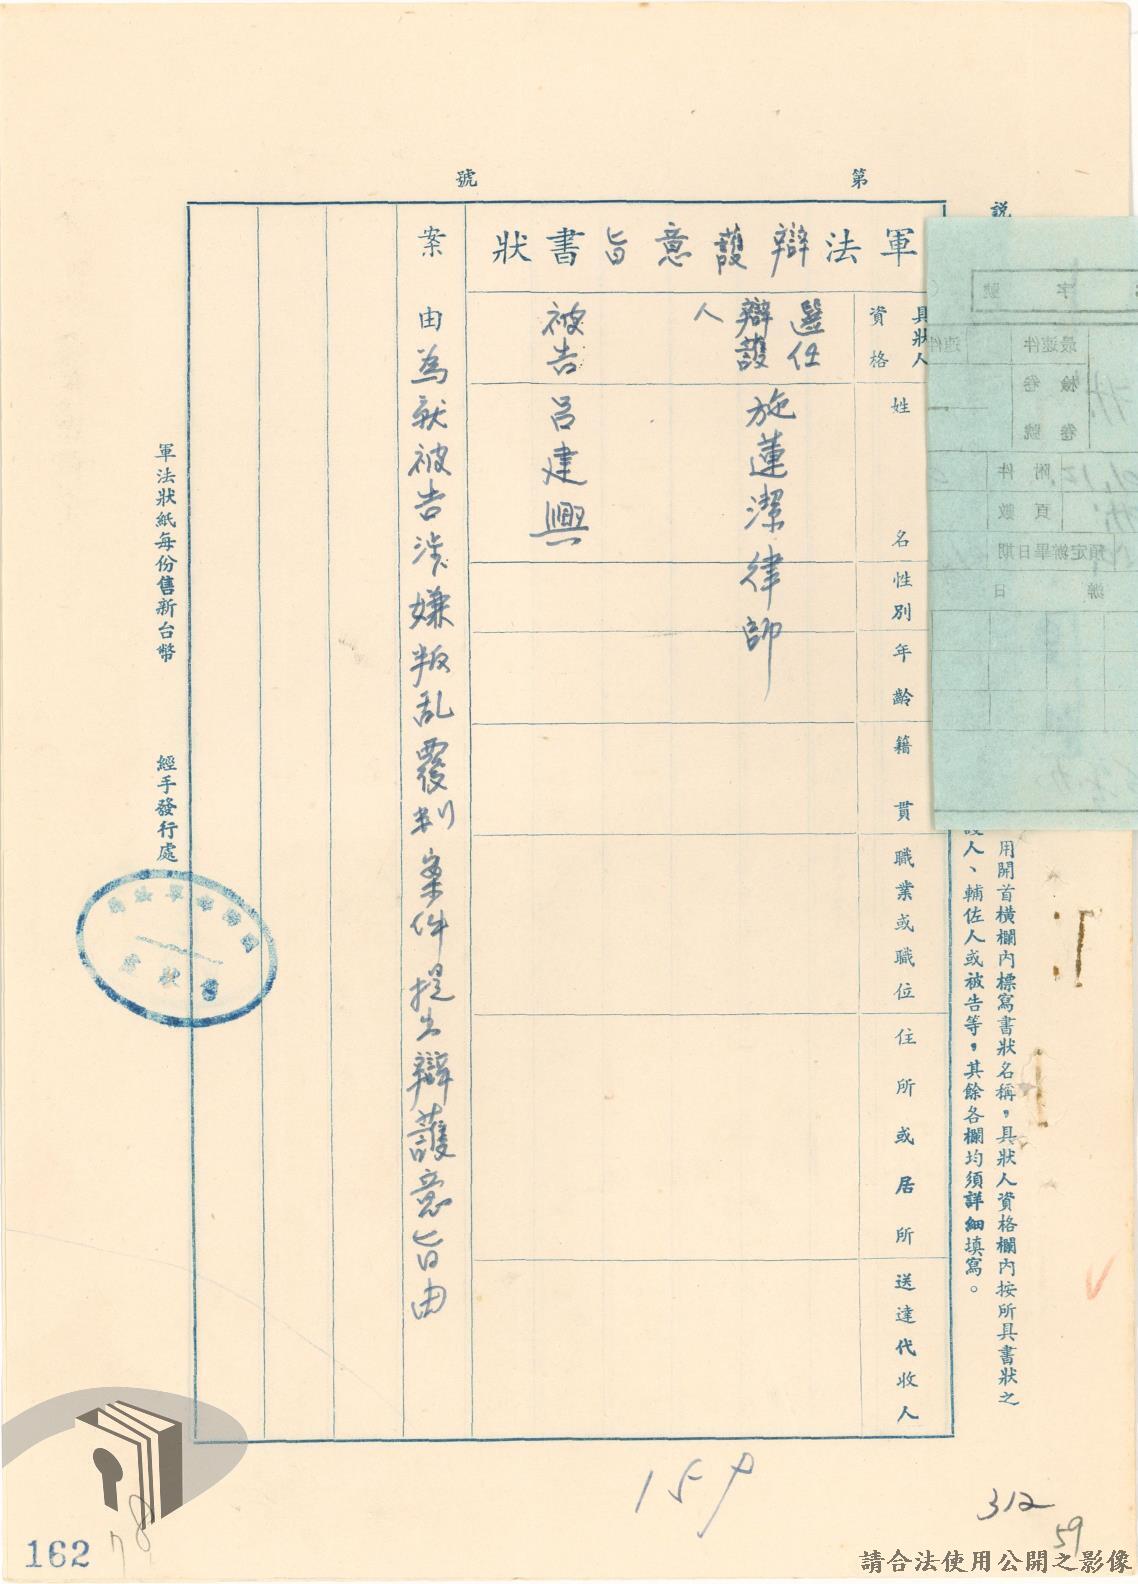 第 號
說
用開首橫欄內標寫書狀名稱，具狀人資格欄內按所具書狀之
護人、輔佐人或被告等，其餘各欄均須詳細填寫。
軍法辯護意旨書狀
具狀人資格
姓名
性別
年齡
籍貫
職業或職位
住所或居所
送達代收人
選任辯護人 施蓮潔律師
被告 呂建興
案由 為就被告涉嫌叛乱覆判案件提出辯護意旨由
軍法狀紙每份售新台幣 經手發行處
字 號
最速件 速件
檢卷
卷號
附件
頁數
預定辦畢日期
辦 日
312
59
162
78
請合法使用公開之影像